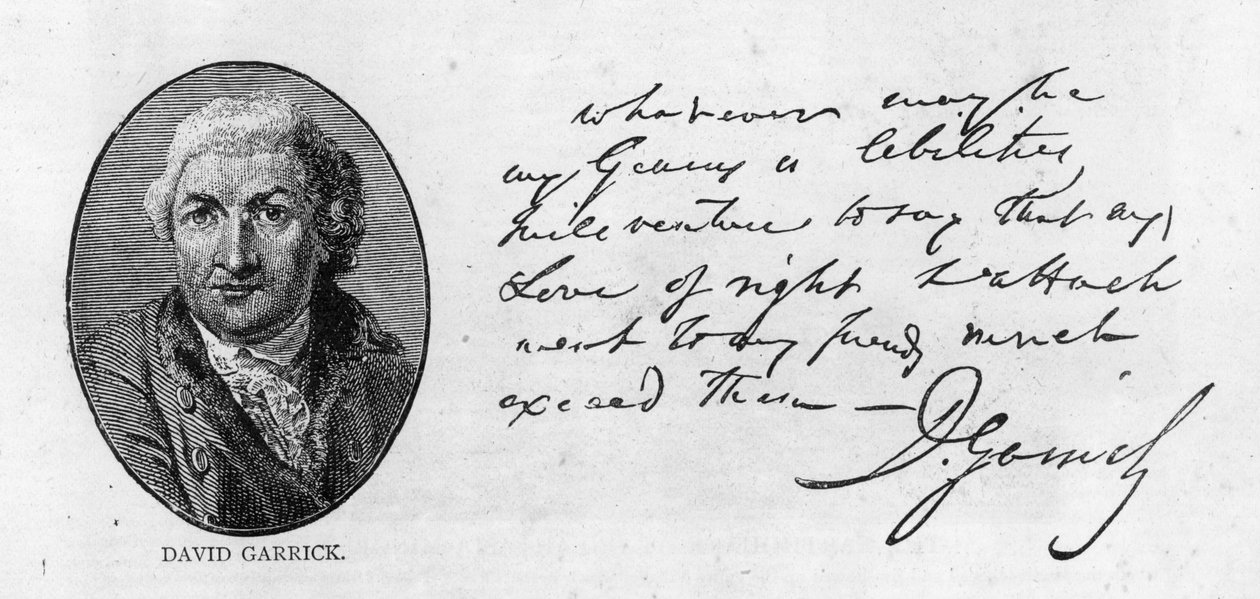 whatever may be
my Genius or Abilities
I will venture to say that my
Love of right & attach
ment to my friends much
exceed them —
D. Garrick
DAVID GARRICK.